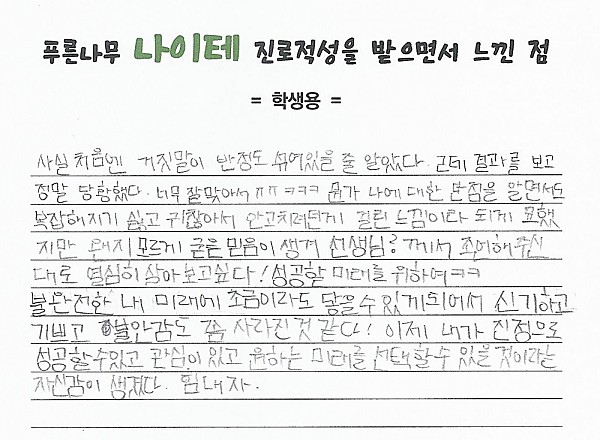 푸른나무 나이테 진로적성을 받으면서 느낀 점
= 학생용 =
사실 처음엔 거짓말이 반정도 섞여있을 줄 알았다. 근데 결과를 보고
정말 당황했다. 너무 잘맞아서 ㅠㅠ ㅋㅋㅋ 뭔가 나에 대한 단점을 알면서도
복잡해지기 싫고 귀찮아서 안고치려던게 걸린 느낌이라 되게 묘했
지만 왠지 모르게 굳은 믿음이 생겨 선생님? 께서 조언해주신
대로 열심히 살아보고싶다! 성공한 미래를 위하여ㅋㅋ
불완전한 내 미래에 조금이라도 닿을수 있게되어서 신기하고
기쁘고 불안감도 좀 사라진것 같다! 이제 내가 진정으로
성공할수있고 관심이 있고 원하는 미래를 선택할수 있을 것이라는
자신감이 생겼다. 힘내자.